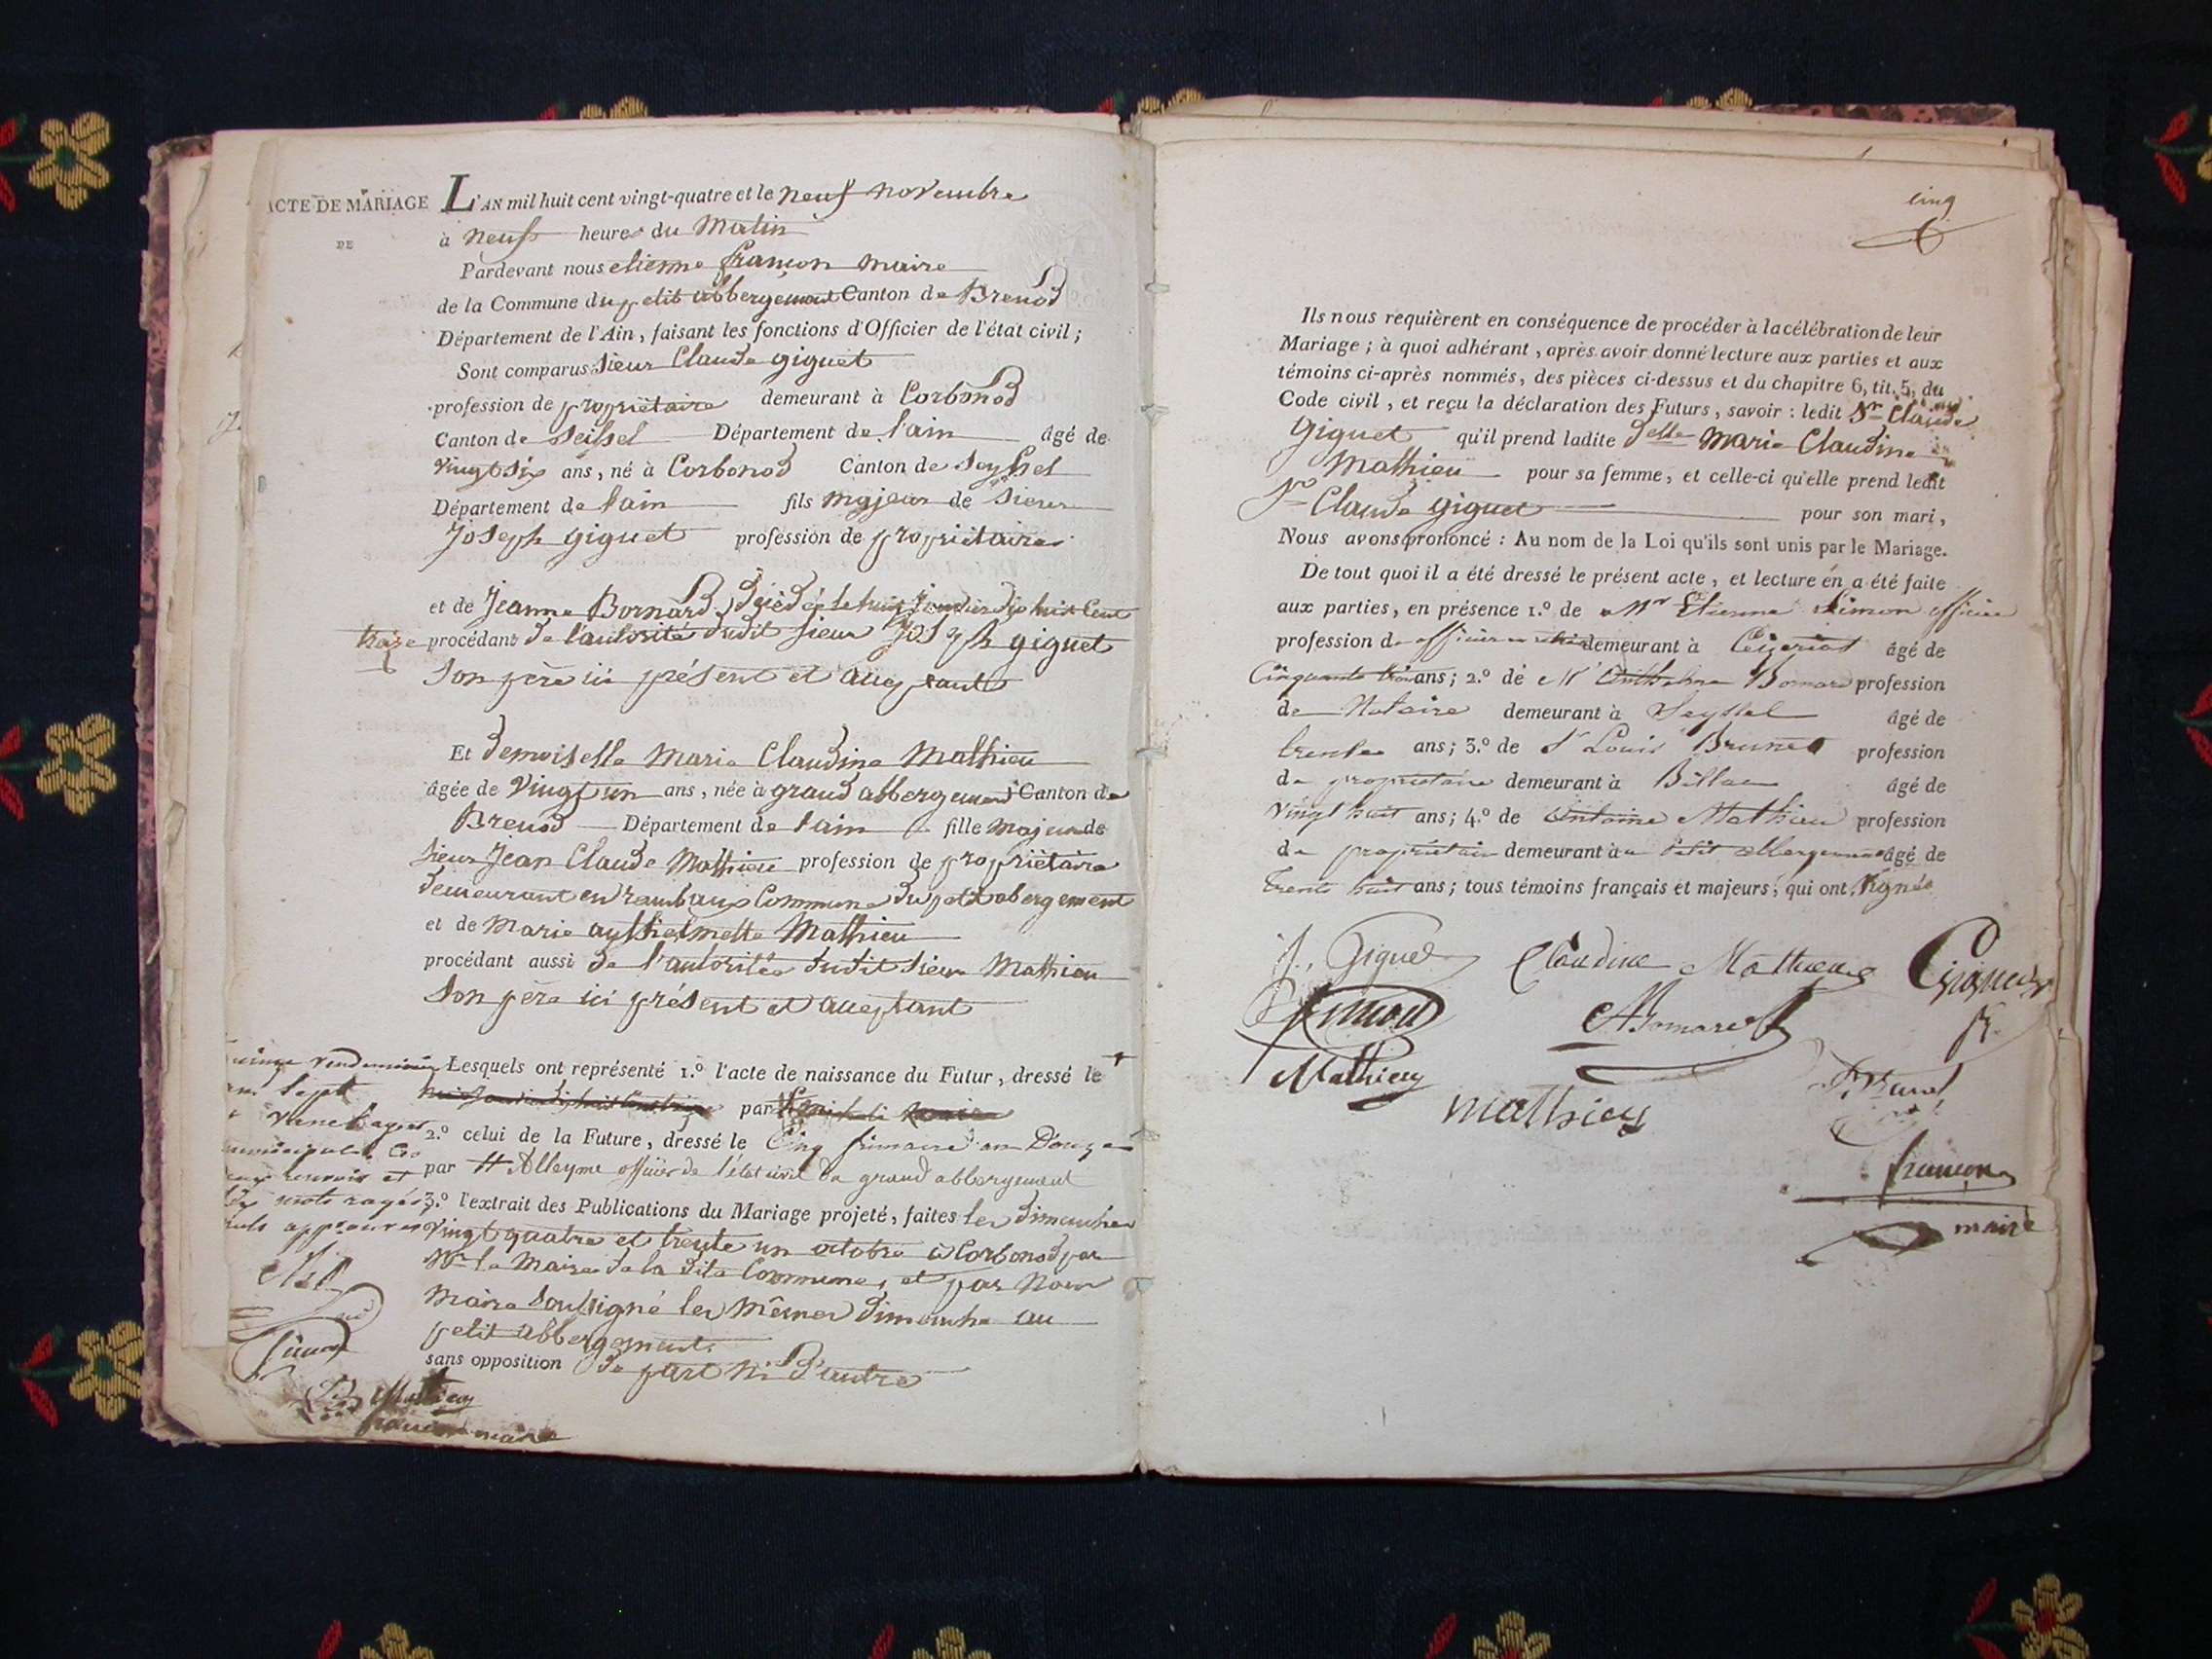 ACTE DE MARIAGE
DE
L'AN mil huit cent vingt-quatre et le neuf novembre
à neuf heures du matin
Pardevant nous etienne françon maire
de la Commune du petit abbergement Canton de Brenod
Département de l'Ain, faisant les fonctions d'Officier de l'état civil ;
Sont comparus sieur Claude giguet
profession de propriétaire demeurant à Corbonod
Canton de Seissel Département de l'ain âgé de
vingt six ans, né à Corbonod Canton de Seyssel
Département de l'ain fils majeur de sieur
Joseph giguet profession de propriétaire
et de Jeanne Bornard, décédée le huit janvier dix huit cent
treize procédant de l'autorité dudit sieur Joseph giguet
son père ici présent et acceptant
Et demoiselle Marie Claudine Mathieu
âgée de vingt un ans, née à grand abbergement Canton de
Brenod Département de l'ain fille majeure de
sieur Jean Claude Mathieu profession de propriétaire
demeurant en rambaux Commune du petit abergement
et de Marie anthelmette Mathieu
procédant aussi de l'autorité dudit sieur Mathieu
son père ici présent et acceptant
Lesquels ont représenté 1.º l'acte de naissance du Futur, dressé le
par
2.º celui de la Future, dressé le Cinq frimaire an Douze
par Mr Alleyme officier de l'état civil du grand abbergement
3.º l'extrait des Publications du Mariage projeté, faites les dimanches
vingt quatre et trente un octobre à Corbonod par
Mr le Maire de la dite Commune, et par Nous
Maire soussigné les mêmes dimanche au
petit abbergement.
sans opposition de part ni d'autre
vendemiaire
an sept
municipale
renvoi et
les mots rayés
nuls approuvés
Mathieu
françon maire
cinq
Ils nous requièrent en conséquence de procéder à la célébration de leur
Mariage ; à quoi adhérant, après avoir donné lecture aux parties et aux
témoins ci-après nommés, des pièces ci-dessus et du chapitre 6, tit. 5, du
Code civil, et reçu la déclaration des Futurs, savoir : ledit Sr Claude
Giguet qu'il prend ladite Delle Marie Claudine
Mathieu pour sa femme, et celle-ci qu'elle prend ledit
Sr Claude giguet pour son mari,
Nous avons prononcé : Au nom de la Loi qu'ils sont unis par le Mariage.
De tout quoi il a été dressé le présent acte, et lecture en a été faite
aux parties, en présence 1.º de Mr Etienne Simon officier
profession d officier demeurant à Ceyzeriat âgé de
Cinquante trois ans ; 2.º de Mr Anthelme Bornard profession
de Notaire demeurant à Seyssel âgé de
trente ans ; 3.º de Sr Louis Brunet profession
de propriétaire demeurant à Billac âgé de
vingt huit ans ; 4.º de Antoine Mathieu profession
de propriétaire demeurant à u Petit abbergement âgé de
trente huit ans ; tous témoins français et majeurs, qui ont signés
J. Giguet
Claudine Mathieu
Giguet
Simon
ABornard
Mathieu
Mathieu
Brunet
françon
maire